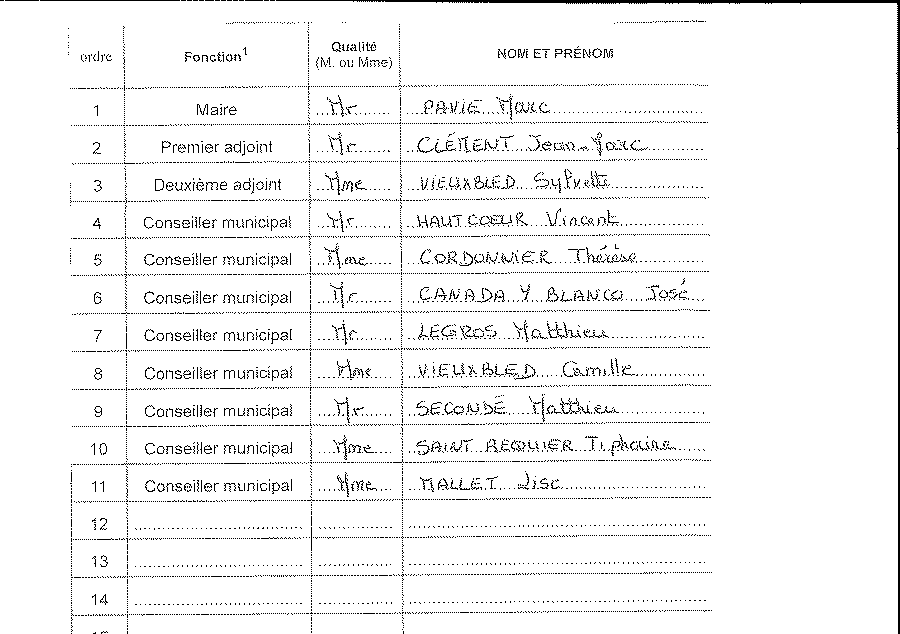 ordre Fonction1 Qualité (M. ou Mme) NOM ET PRÉNOM
1 Maire Mr PAVIE Marc
2 Premier adjoint Mr CLÉMENT Jean-Marc
3 Deuxième adjoint Mme VIEUXBLED Sylvette
4 Conseiller municipal Mr HAUTCOEUR Vincent
5 Conseiller municipal Mme CORDONNIER Thérèse
6 Conseiller municipal Mr CANADA Y BLANCO José
7 Conseiller municipal Mr LEGROS Matthieu
8 Conseiller municipal Mme VIEUXBLED Camille
9 Conseiller municipal Mr SECONDÉ Matthieu
10 Conseiller municipal Mme SAINT REQUIER Tiphaine
11 Conseiller municipal Mme MALLET Lise
12
13
14